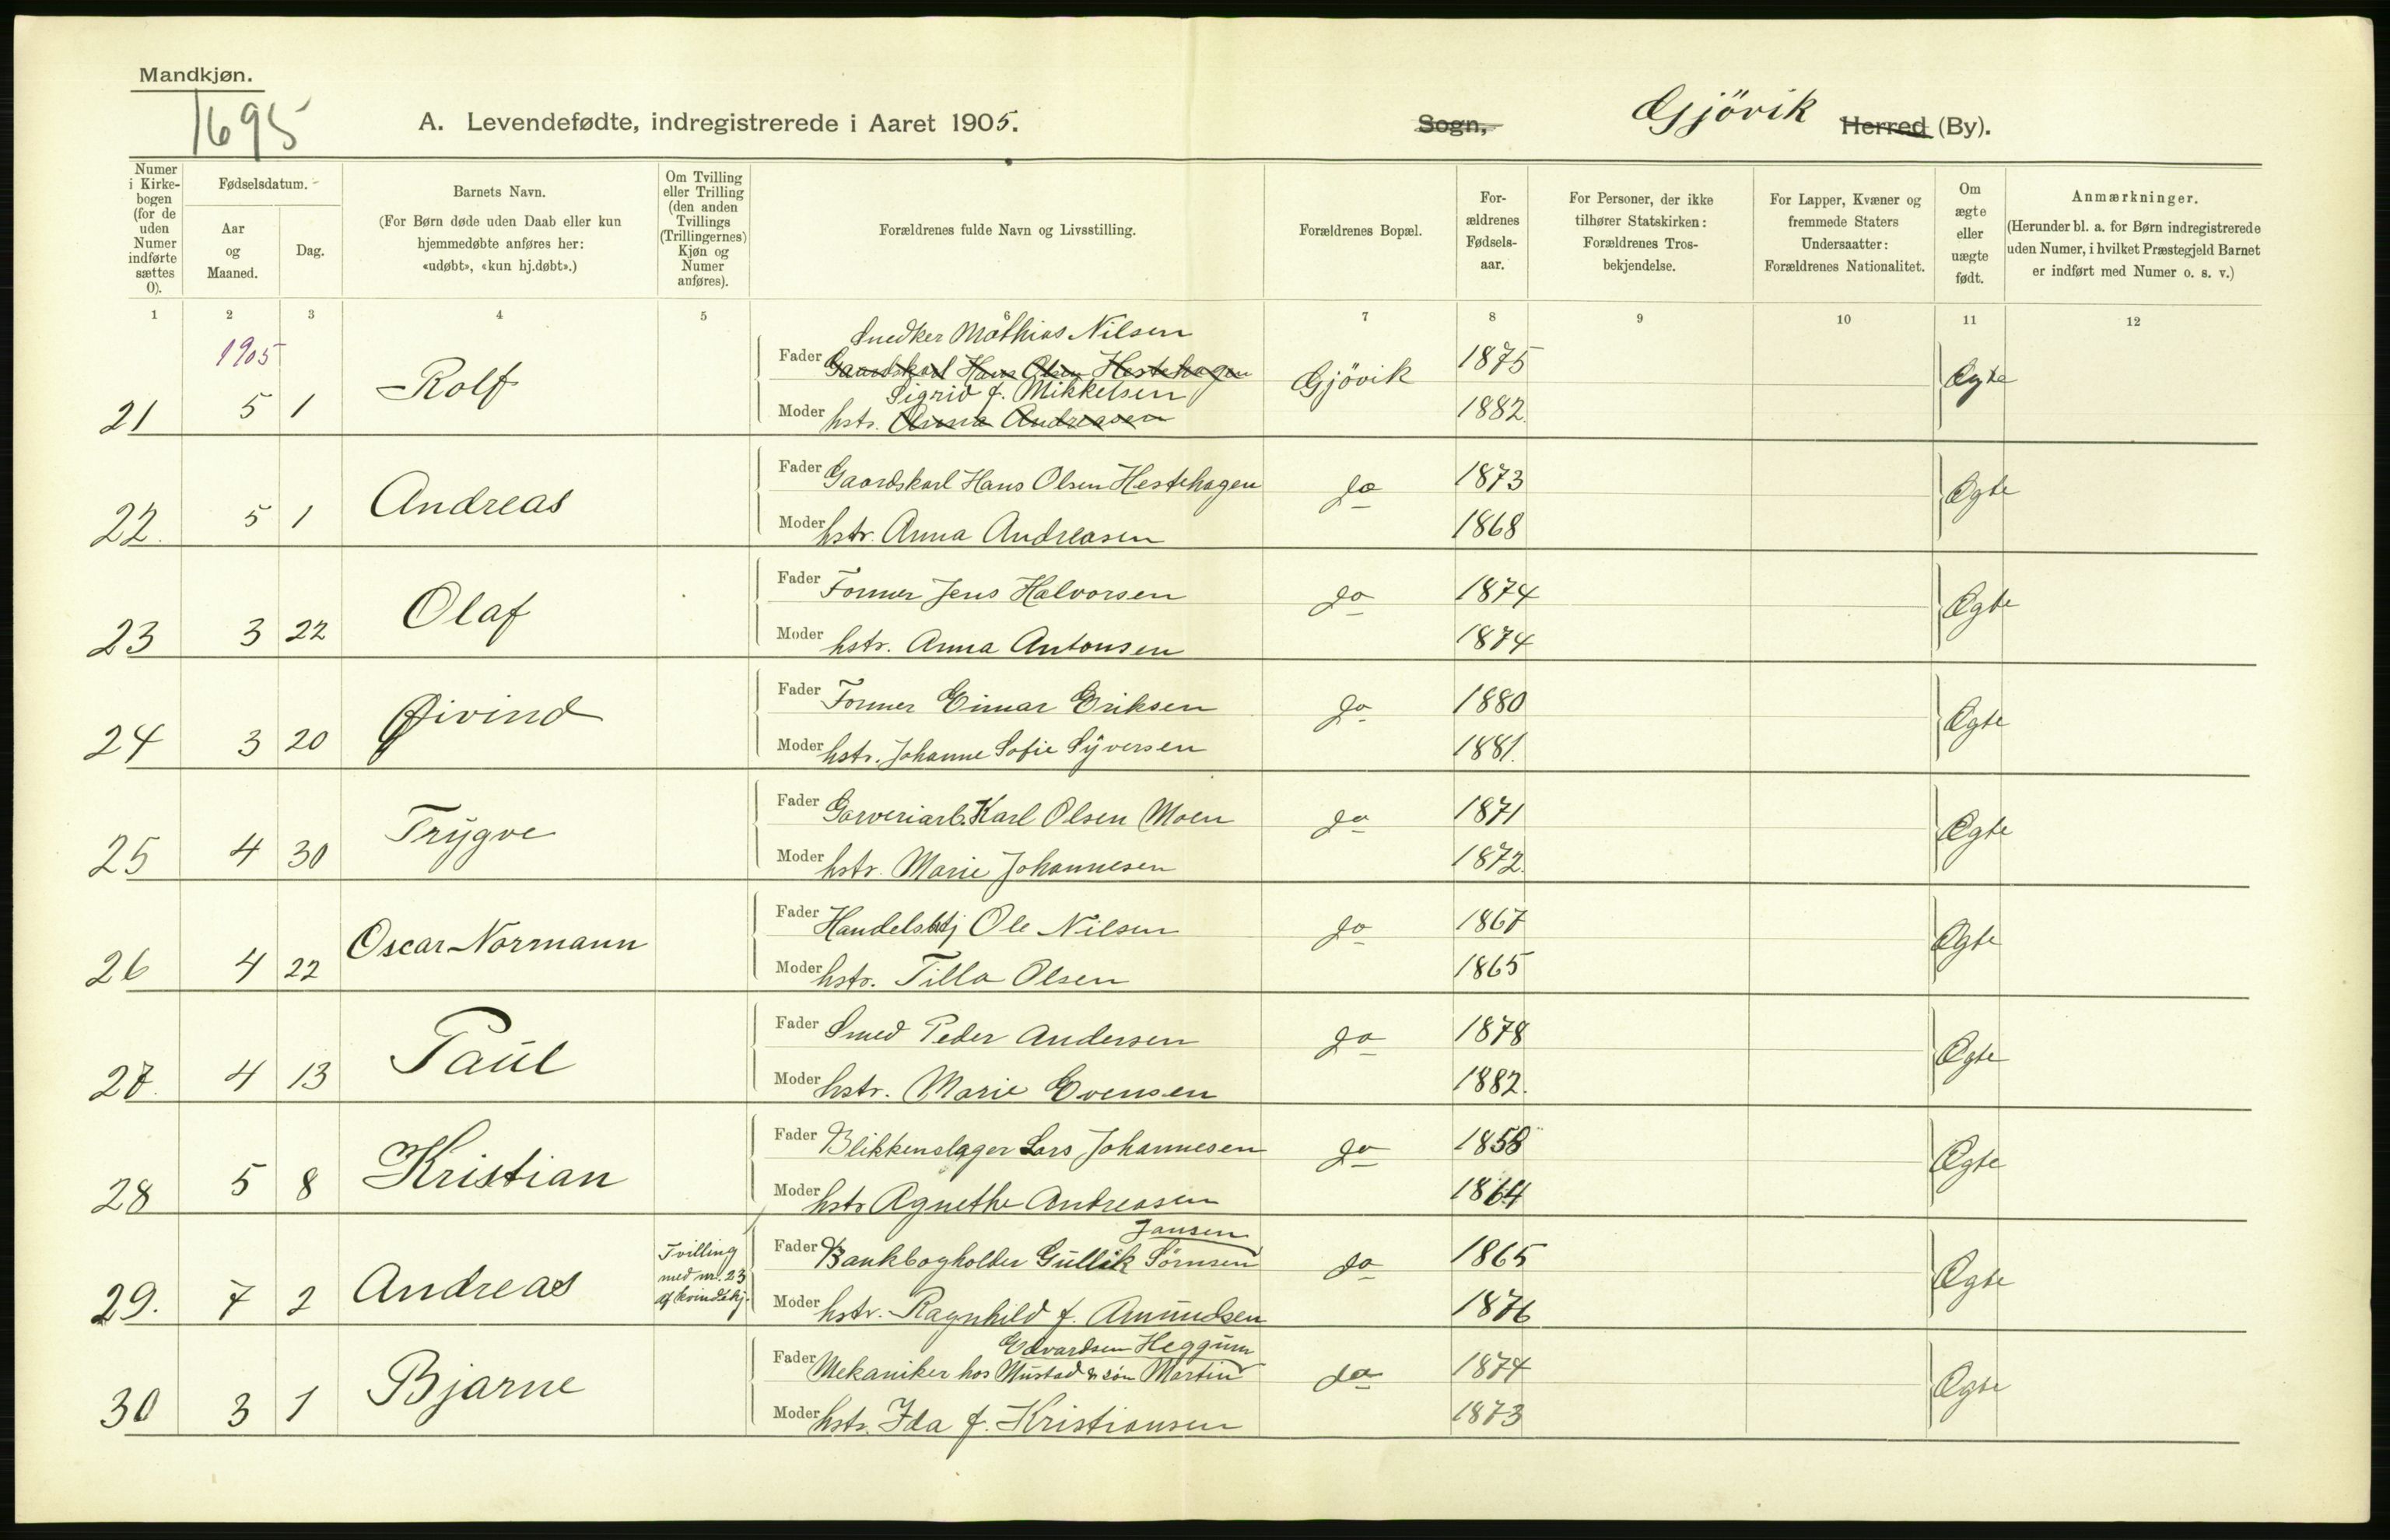 Mandkjøn.
1695
A. Levendefødte, indregistrerede i Aaret 1905.
Sogn, Gjövik Herred (By).
Numer i Kirkebogen (for de uden Numer indførte sættes 0).
Fødselsdatum.
Aar og Maaned.
Dag.
Barnets Navn.
(For Børn døde uden Daab eller kun hjemmedøbte anføres her: «udøbt», «kun hj.døbt».)
Om Tvilling eller Trilling (den anden Tvillings (Trillingernes) Kjøn og Numer anføres).
Forældrenes fulde Navn og Livsstilling.
Forældrenes Bopæl.
Forældrenes Fødselsaar.
For Personer, der ikke tilhører Statskirken: Forældrenes Trosbekjendelse.
For Lapper, Kvæner og fremmede Staters Undersaatter: Forældrenes Nationalitet.
Om ægte eller uægte født.
Anmærkninger.
(Herunder bl. a. for Børn indregistrerede uden Numer, i hvilket Præstegjeld Barnet er indført med Numer o. s. v.)
1 2 3 4 5 6 7 8 9 10 11 12
1905
Snedker Mathias Nilsen
Fader Gaardskarl Hans Olsen Hestehagen 1875
21 5 1 Rolf Gjövik Ægte
Sigrid f. Mikkelsen
Moder hstr. Anna Andreasen 1882.
Fader Gaardskarl Hans Olsen Hestehagen 1873
22. 5 1 Andreas do Ægte
Moder hstr. Anna Andreasen 1868
Fader Former Jens Halvorsen 1874
23 3 22 Olaf do Ægte
Moder hstr. Anna Antonsen 1874
Fader Former Einar Eriksen 1880
24 3 20 Øivind do Ægte
Moder hstr. Johanne Sofie Syversen 1881.
Fader Garveriarb. Karl Olsen Moen 1871
25 4 30 Trygve do Ægte
Moder hstr. Marie Johannesen 1872.
Fader Handelsbtj Ole Nilsen 1867
26 4 22 Oscar Normann do Ægte
Moder hstr. Tilla Olsen 1865
Fader Smed Peder Andersen 1878
27. 4 13 Paul do Ægte
Moder hstr. Marie Evensen 1882.
Fader Blikkenslager Lars Johannesen 1858
28 5 8 Kristian do Ægte
Moder hstr Agnethe Andreasen 1864
Jansen
Fader Bankbogholder Gullik Sörnsen 1865
29. 7 2 Andreas Tvilling med nr. 23 af kvindekj. do Ægte
Moder hstr. Ragnhild f. Amundsen 1876
Edvardsen Heggum
Fader Mekaniker hos Mustad & søn Martin 1874
30 3 1 Bjarne do Ægte
Moder hstr. Ida f. Kristiansen 1873